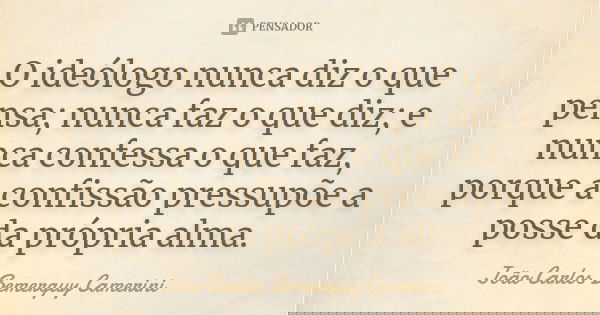 PENSADOR
O ideólogo nunca diz o que
pensa; nunca faz o que diz; e
nunca confessa o que faz,
porque a confissão pressupõe a
posse da própria alma.
João Carlos Semerguy Camerini